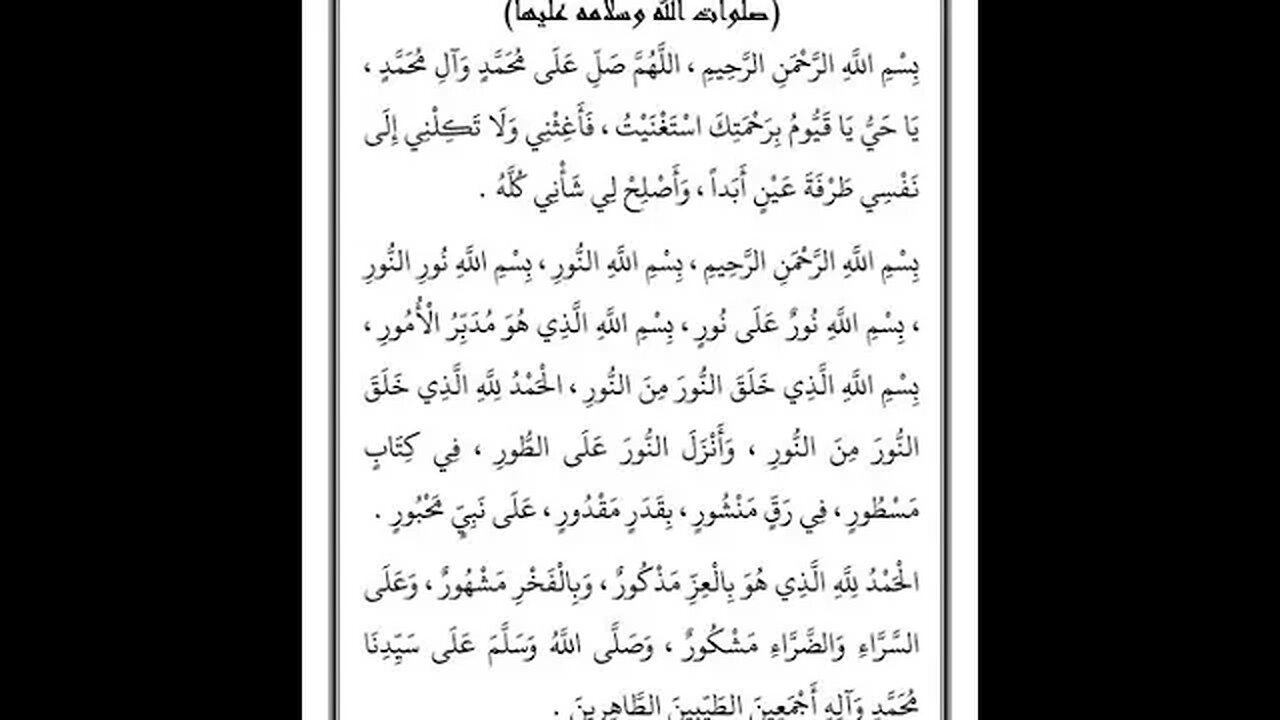 (صلوات الله وسلامه عليها)
بِسْمِ اللَّهِ الرَّحْمَنِ الرَّحِيمِ ، اللَّهُمَّ صَلِّ عَلَى مُحَمَّدٍ وَآلِ مُحَمَّدٍ ،
يَا حَيُّ يَا قَيُّومُ بِرَحْمَتِكَ اسْتَغْنَيْتُ ، فَأَغِثْنِي وَلَا تَكِلْنِي إِلَى
نَفْسِي طَرْفَةَ عَيْنٍ أَبَداً ، وَأَصْلِحْ لِي شَأْنِي كُلَّهُ .
بِسْمِ اللَّهِ الرَّحْمَنِ الرَّحِيمِ ، بِسْمِ اللَّهِ النُّورِ ، بِسْمِ اللَّهِ نُورِ النُّورِ
، بِسْمِ اللَّهِ نُورٌ عَلَى نُورٍ ، بِسْمِ اللَّهِ الَّذِي هُوَ مُدَبِّرُ الْأُمُورِ ،
بِسْمِ اللَّهِ الَّذِي خَلَقَ النُّورَ مِنَ النُّورِ ، الْحَمْدُ لِلَّهِ الَّذِي خَلَقَ
النُّورَ مِنَ النُّورِ ، وَأَنْزَلَ النُّورَ عَلَى الطُّورِ ، فِي كِتَابٍ
مَسْطُورٍ ، فِي رَقٍّ مَنْشُورٍ ، بِقَدَرٍ مَقْدُورٍ ، عَلَى نَبِيٍّ مَحْبُورٍ .
الْحَمْدُ لِلَّهِ الَّذِي هُوَ بِالْعِزِّ مَذْكُورٌ ، وَبِالْفَخْرِ مَشْهُورٌ ، وَعَلَى
السَّرَّاءِ وَالضَّرَّاءِ مَشْكُورٌ ، وَصَلَّى اللَّهُ وَسَلَّمَ عَلَى سَيِّدِنَا
مُحَمَّدٍ وَآلِهِ أَجْمَعِينَ الطَيِّبِينَ الطَّاهِرِينَ .